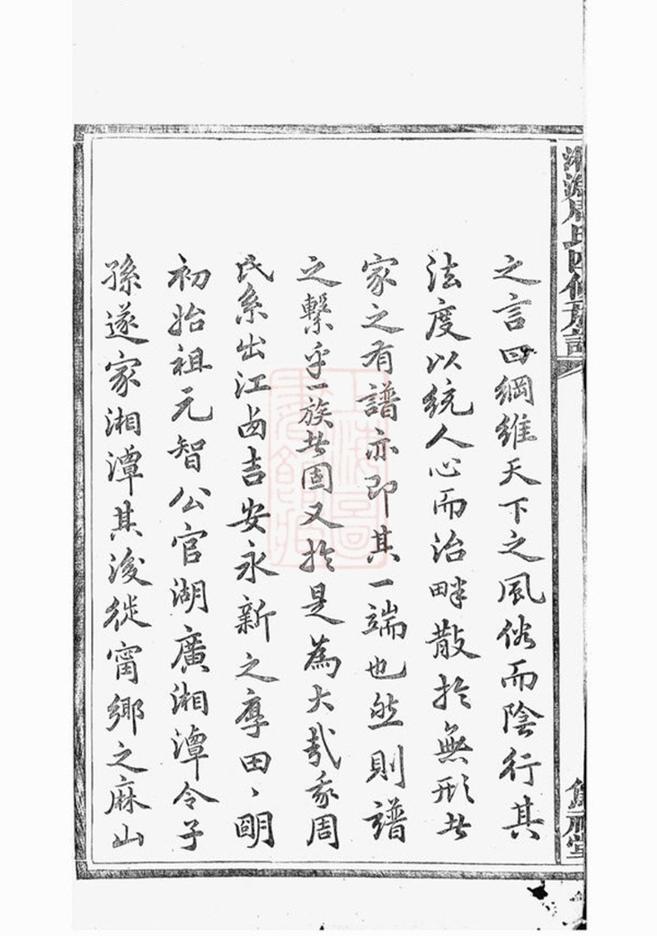 周氏四修
之言曰綱維天下之風俗而陰行其
法度以統人心而治畔散於無形者
家之有譜亦即其一端也然則譜
之繫乎一族者固又於是為大哉我周
氏系出江西吉安永新之厚田、明
初始祖元智公官湖廣湘潭令子
孫遂家湘潭其後徙甯鄉之麻山
上海圖書館藏